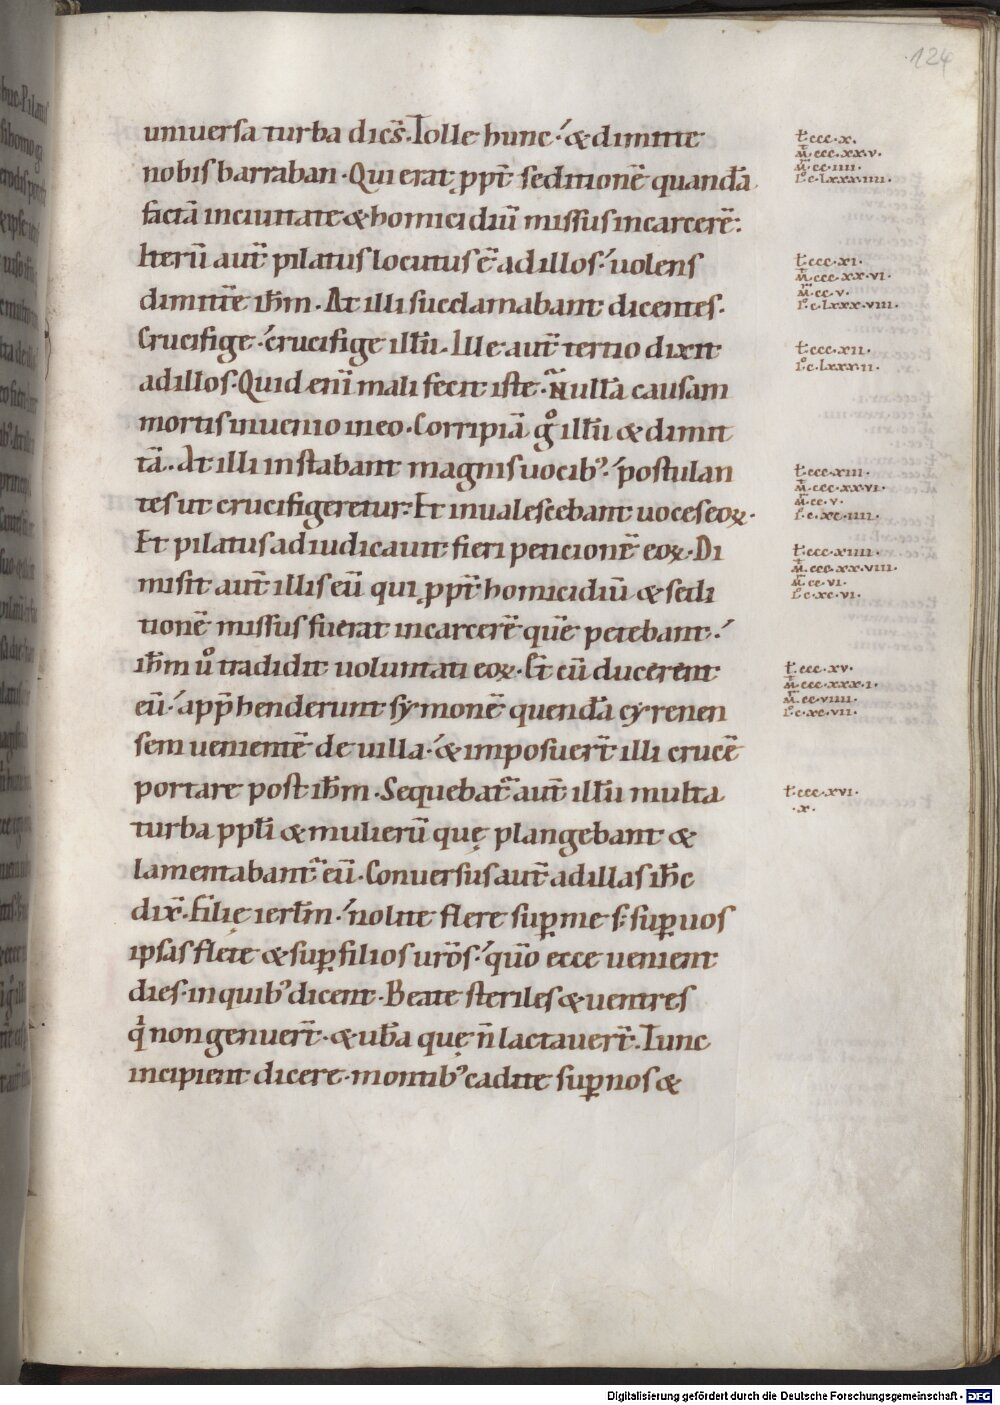 124
uniuersa turba dicẽs. Tolle hunc ·́ & dimitte
nobis barraban · Qui erat ꝓpt̃ seditionẽ quandã
factã inciuitate & homicidiũ missus incarcerẽ:
Iterũ aut̃ pilatus locutus ẽ adillos ·́ uolens
dimitt̃e ihm̃ · At illi succlamabant dicentes ·
Crucifige ·́ crucifige illũ · Ille aut̃ tertio dixit
adillos · Quid eni̅ mali fecit iste · Nullã causam
mortis inuenio ineo · Corripiã gͦ illũ & dimit
tã · At illi instabant magnis uocibꝰ ·́ postulan
tes ut crucifigeretur : Et inualescebant uoces eoꝝ ·
Et pilatus adiudicauit fieri peticionẽ eoꝝ · Di
misit aut̃ illis eũ qui ꝓpt̃ homicidiũ & sedi
tionẽ missus fuerat incarcerẽ quẽ petebant ·́
ihm̃ uͦ tradidit uoluntati eoꝝ · Et cũ ducerent
eũ ·́ app̃henderunt symonẽ quendã cyrenen
sem uenientẽ de uilla ·́ & imposuer̃t illi crucẽ
portare post ihm̃ · Sequebat᷑ aut̃ illũ multa
turba ppl̃i & mulierũ quę plangebant &
lamentabant᷑ eũ · Conuersus aut̃ adillas ihc̃
dix̃ · Filię ierl̃m ·́ nolite flere suꝑ me s; suꝑ uos
ipsas flete & suꝑ filios ur̃os ·́ qũo ecce uenient
dies · inquibꝰ dicent · Beate steriles & uentres
qͥ non genuer̃t · & ub̃a quę ñ lactauer̃t · Tunc
incipient dicere · montibꝰ cadite suꝑ nos &
ł ccc · x ·
m̃ ccc · xx · v ·
m̃ · cc · iiii ·
ł c · lxxx · iiii ·
ł ccc · xi ·
m̃ ccc · xx · vi ·
m̃ · cc · v ·
ł c · lxxx · viii ·
ł ccc · xii ·
ł c · lxxx · ii ·
ł ccc · xiii ·
m̃ · ccc · xx · vi ·
m̃ · cc · v ·
ł · c · xc · iiii ·
ł ccc · xiiii ·
m̃ · ccc · xx · viii ·
m̃ · cc · vi ·
ł c · xc · vi ·
ł ccc · xv ·
m̃ ccc · xxx · i ·
m̃ · cc · viiii ·
ł c · xc · vii ·
ł ccc · xvi ·
· x ·
Digitalisierung gefördert durch die Deutsche Forschungsgemeinschaft - DFG